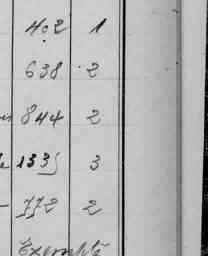 402 1
638 2
844 2
1335 3
772 2
Exempté